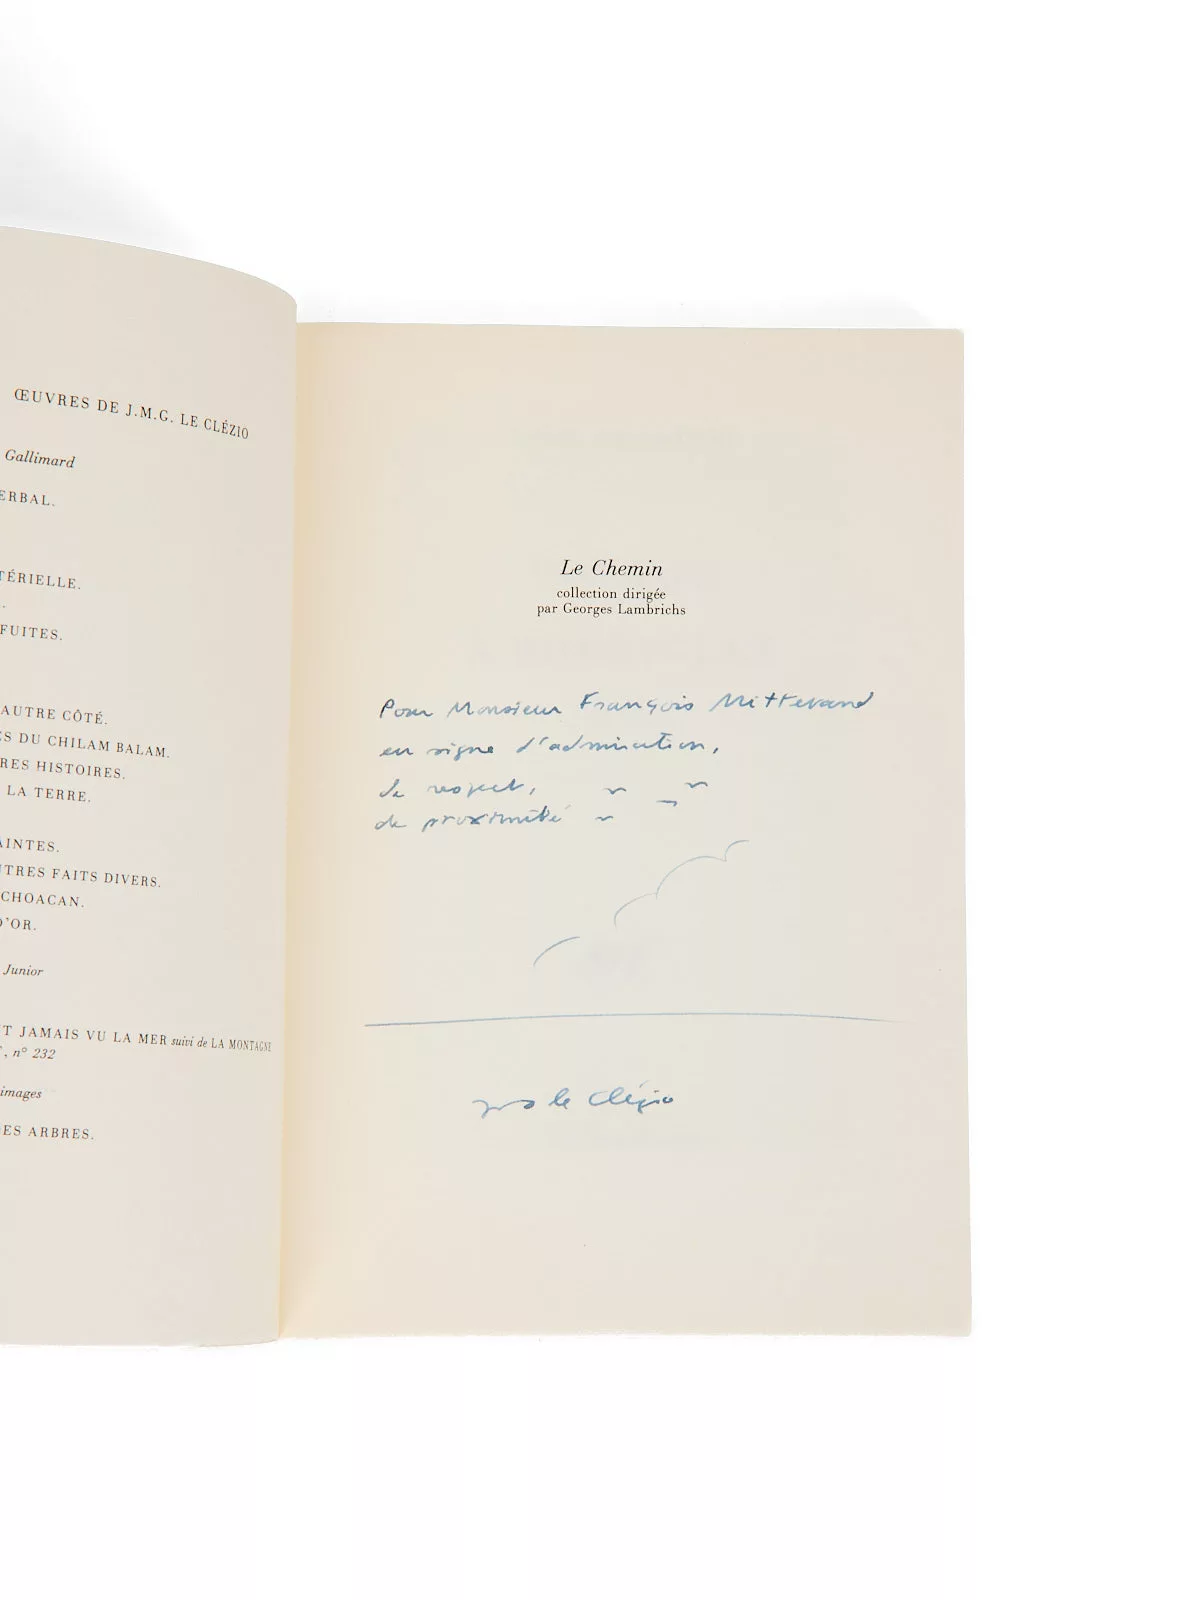 ŒUVRES DE J.M.G. LE CLÉZIO
Gallimard
ERBAL.
TÉRIELLE.
.
FUITES.
AUTRE CÔTÉ.
S DU CHILAM BALAM.
RES HISTOIRES.
LA TERRE.
AINTES.
UTRES FAITS DIVERS.
CHOACAN.
D'OR.
Junior
T JAMAIS VU LA MER suivi de LA MONTAGNE
, n° 232
images
ES ARBRES.
Le Chemin
collection dirigée
par Georges Lambrichs
Pour Monsieur François Mitterand
en signe d'admiration,
de respect,
de proximité
le Clézio